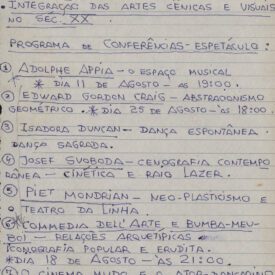 • INTEGRAÇÃO DAS ARTES CÊNICAS E VISUAIS
NO SÉC. XX.
PROGRAMA DE CONFERÊNCIAS-ESPETÁCULO:
① ADOLPHE APPIA – O ESPAÇO MUSICAL
* DIA 11 DE AGOSTO – AS 19:00.
② EDWARD GORDON CRAIG – ABSTRACIONISMO
GEOMÉTRICO. * DIA 25 DE AGOSTO – AS 18:00.
③ ISADORA DUNCAN – DANÇA ESPONTÂNEA.
DANÇA SAGRADA.
④ JOSEF SVOBODA – CENOGRAFIA CONTEMPO
RÂNEA – CINÉTICA E RAIO LAZER.
⑤ PIET MONDRIAN – NEO-PLASTICISMO E
TEATRO DA LINHA.
⑥ COMMEDIA DELL'ARTE E BUMBA-MEU-
BOI – RELAÇÕES ARQUETÍPICAS –
ICONOGRAFIA POPULAR E ERUDITA.
* DIA 18 DE AGOSTO – AS 21:00.
O CINEMA MUDO E O ATOR-DANÇARINO